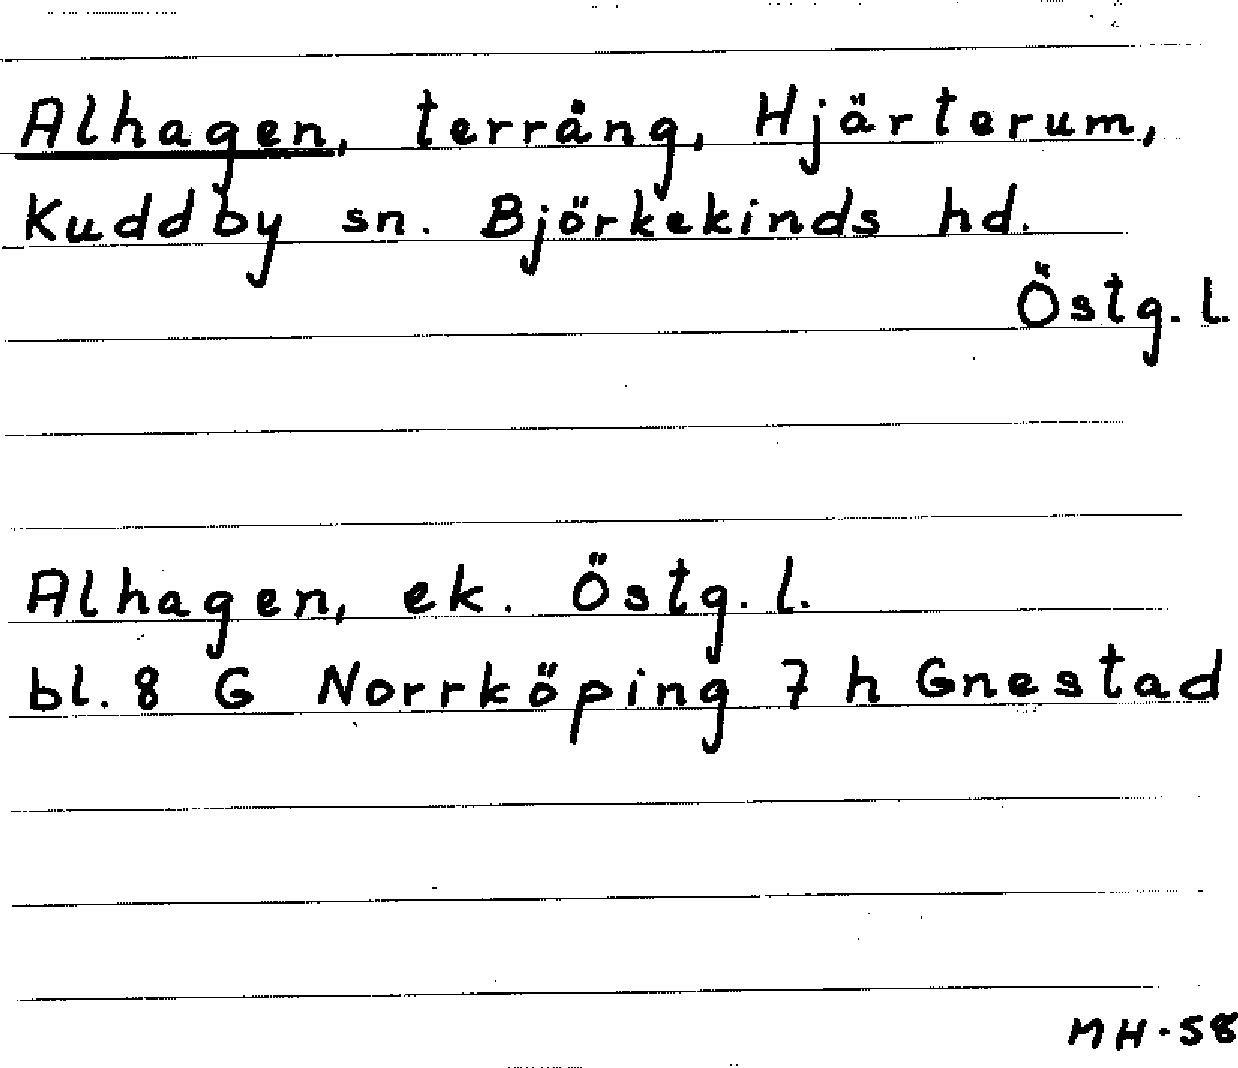 Alhagen, terräng, Hjärterum,
Kuddby sn. Björkekinds hd.
Östg. l.
Alhagen, ek. Östg. l.
bl. 8 G Norrköping 7 h Gnestad
MH-58